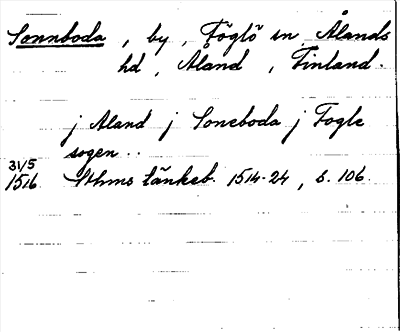 Sonnboda, by, Föglö sn, Ålands
hd, Åland, Finland.
j Aland j Soneboda j Fogle
sogen..
31/5
1516. Sthms tänkeb. 1514-24, s. 106.